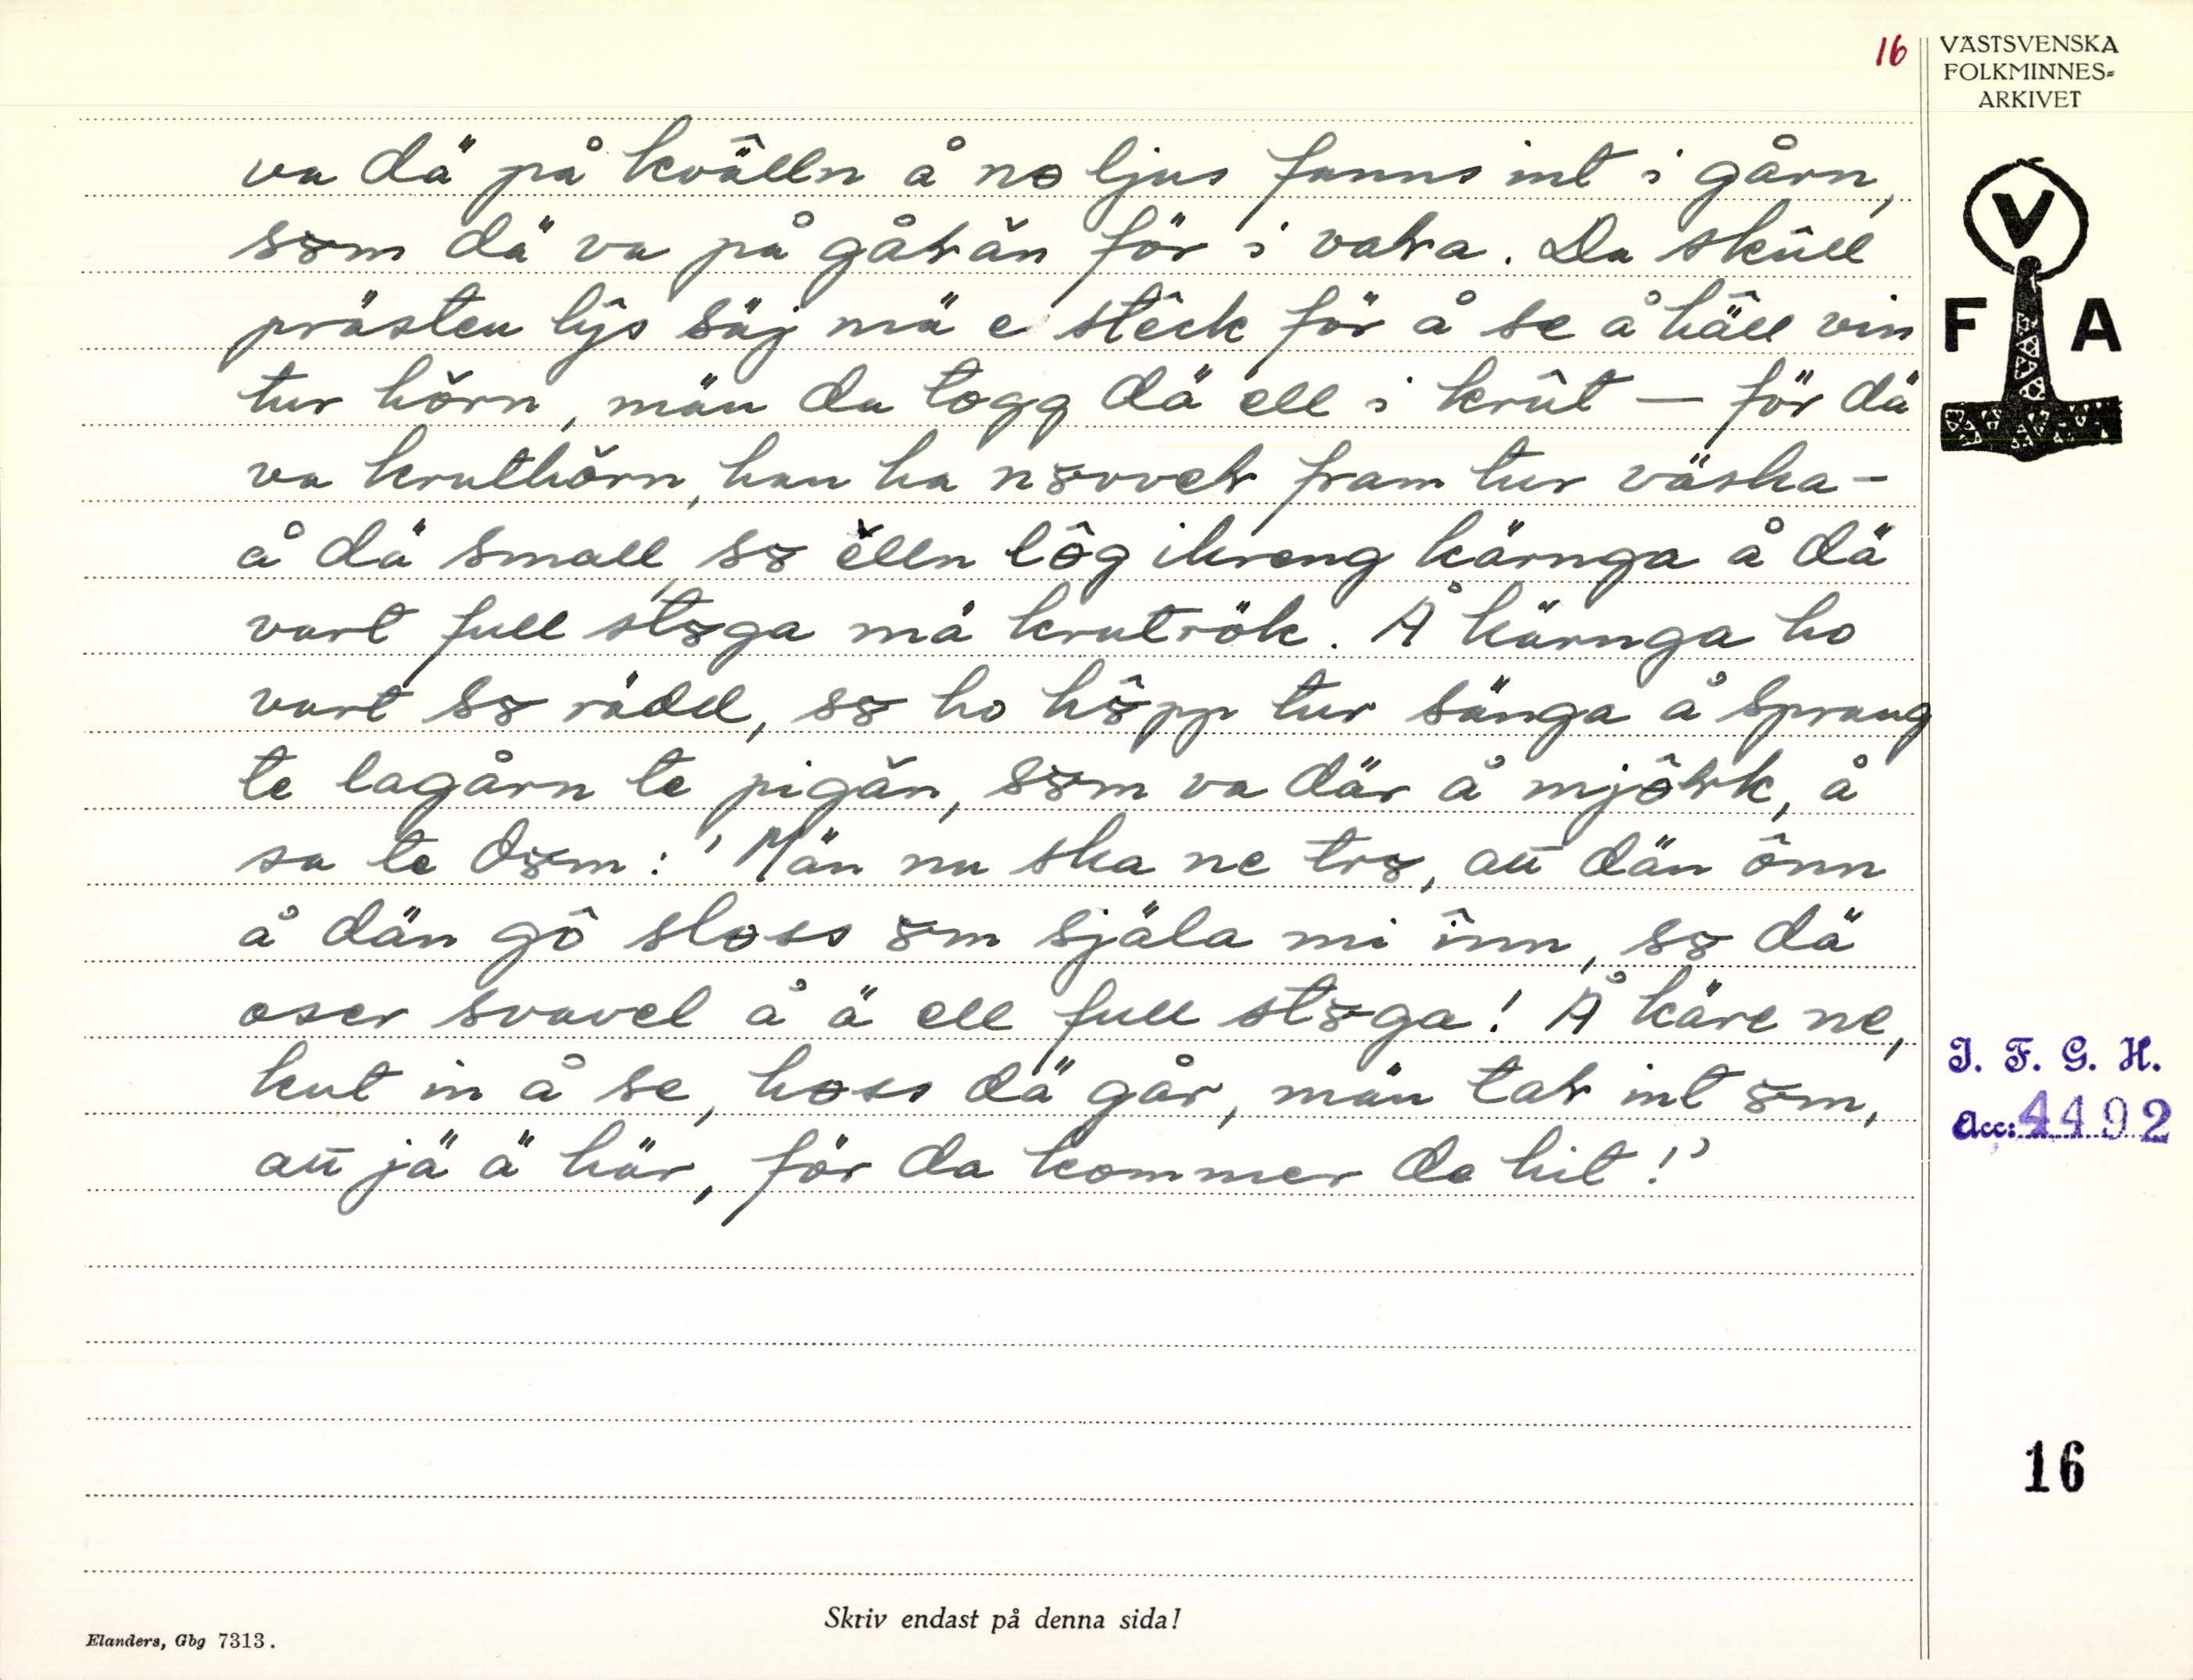 16
VÄSTSVENSKA
FOLKMINNES-
ARKIVET
V
F A
va dä på kvälln å no ljus fanns int i gårn,
sɷm dä va på gåƚăn för i vaƚa. Da skûll
prästen lŷs säj mä e stêck för å se å hâll vin
tur hŏrn, män da togg dä ell i krût — för dä
va kruthŏrn, han ha nɷvveƚ fram tur väska -
å dä small, sɷ ĕlln lôg ikreng kärnga å dä
vart full stɷga mä krutrök. Å kärnga ho
vart sɷ rädd, sɷ ho hɷ̂pp tur sänga å sprang
te lagårn te pigăn, sɷm va där å mjôƚk, å
sa te dɷm: 'Män nu ska ne trɷ, att dän ônn
å dän gô sloss ɷm själa mi înn, sɷ dä
oser svavel å ä ell full stɷga! Å käre ne,
kut in å se, hoss dä går, män taƚ int ɷm,
att jä ä här, för da kommer da hit!'
I. F. G. H.
Acc: 4492
16
Skriv endast på denna sida!
Elanders, Gbg 7313.